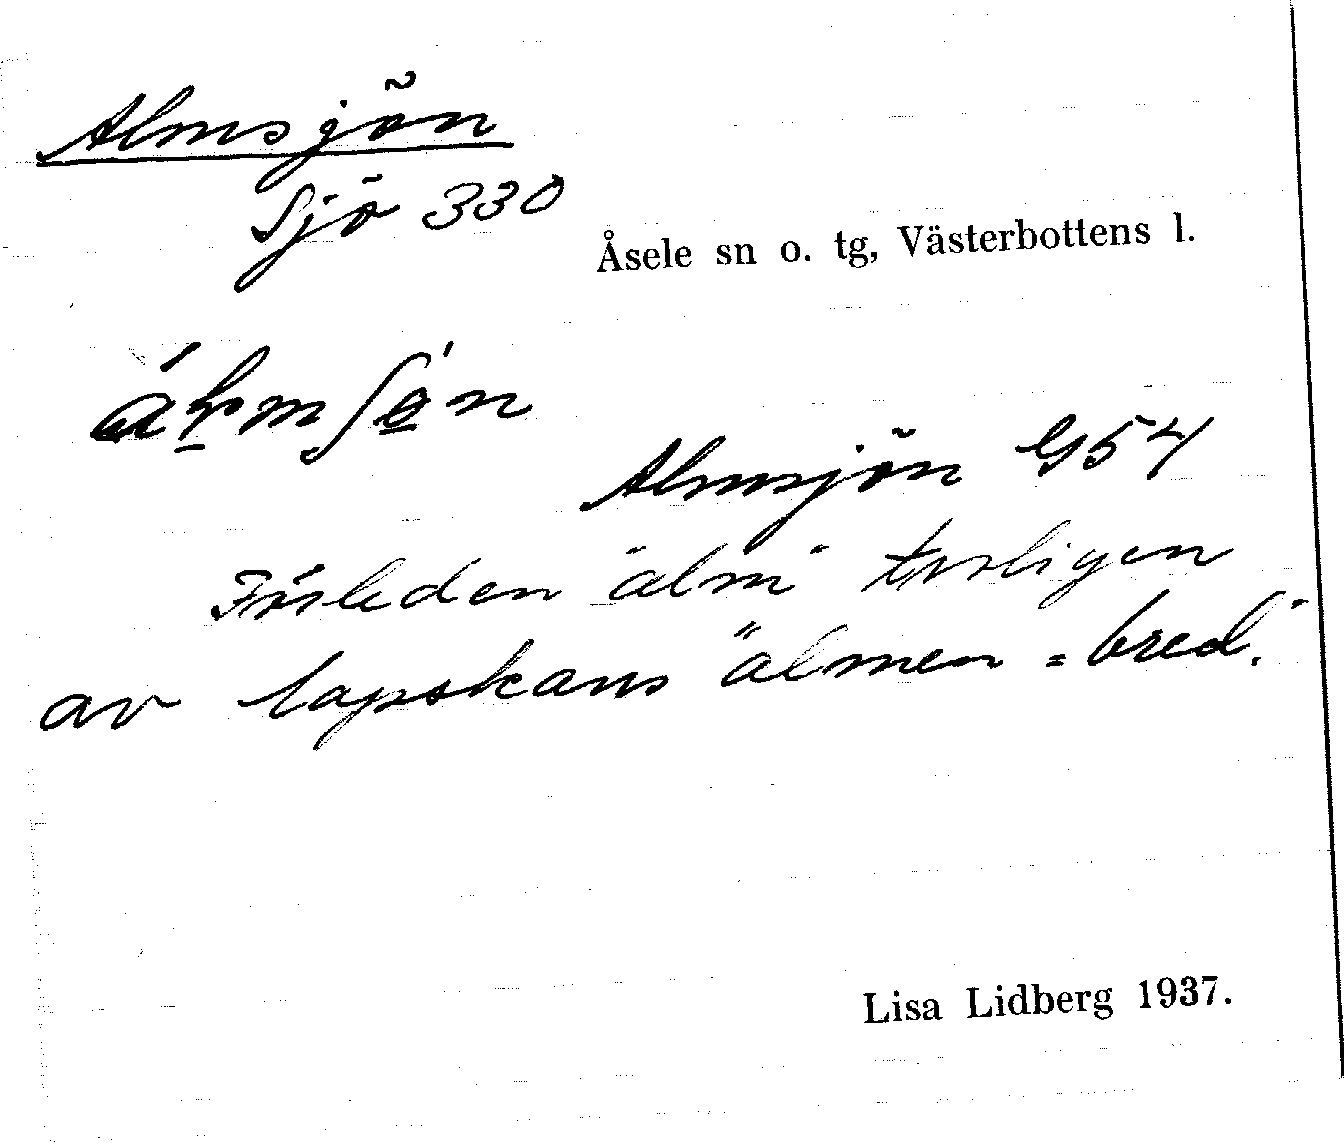 Almsjön
Sjö 330
Åsele sn o. tg, Västerbottens l.
Almsjön G54
Förleden "alm" troligen
av lapskans "almen = bred".
Lisa Lidberg 1937.